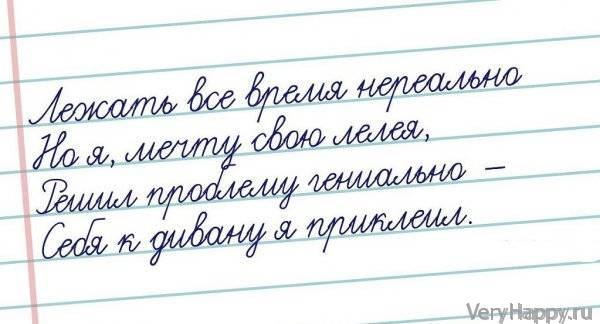 Лежать все время нереально
Но я, мечту свою лелея,
Решил проблему гениально –
Себя к дивану я приклеил.
VeryHappy.ru